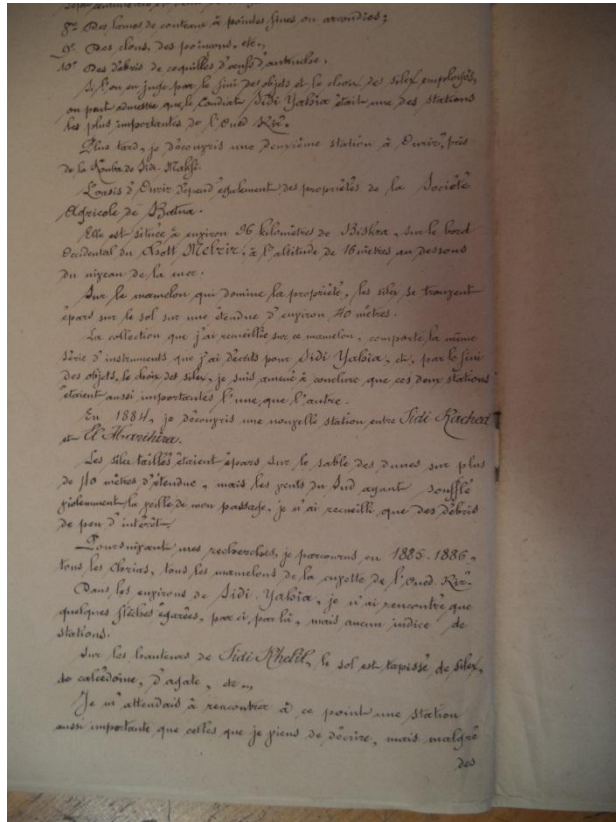 8º Des lames de couteaux à pointes fines ou arrondies;
9º Des clous, des poinçons, etc.,
10º Des débris de coquilles d'œufs d'autruches.
Si l'on en juge par le fini des objets et le choix des silex employés,
on peut admettre que le Coudiat Sidi Yahia était une des stations
les plus importantes de l'Oued Rir.
Plus tard, je découvris une deuxième station à Ourir, près
de la Kouba de Sidi-Makfi.
L'oasis d'Ourir dépend également des propriétés de la Société
Agricole de Batna.
Elle est située à environ 96 kilomètres de Biskra, sur le bord
Occidental du Chott Melrir, à l'altitude de 16 mètres au dessous
du niveau de la mer.
Sur le mamelon qui domine la propriété, les silex se trouvent
épars sur le sol sur une étendue d'environ 40 mètres.
La collection que j'ai recueillie sur ce mamelon, comporte la même
série d'instruments que j'ai décrits pour Sidi Yahia, et, par le fini
des objets, le choix des silex, je suis amené à conclure que ces deux stations
étaient aussi importantes l'une que l'autre.
En 1884, je découvris une nouvelle station entre Sidi Rached
et El
Les silex taillés étaient épars sur le sable des dunes sur plus
de 110 mètres d'étendue, mais les vents du Sud ayant soufflé
violemment la veille de mon passage, je n'ai recueilli que des débris
de peu d'intérêt.
Poursuivant mes recherches, je parcourus en 1885-1886,
tous les tous les mamelons de la cuvette de l'Oued-Rir.
Dans les environs de Sidi Yahia, je n'ai rencontré que
quelques flèches égarées, par ci, par là, mais aucun indice de
stations.
Sur les hauteurs de Sidi Khelil, le sol est tapissé de silex,
de calcédoine, d'agate, etc.,
Je m'attendais à rencontrer à ce point une station
aussi importante que celles que je viens de décrire, mais malgré
des